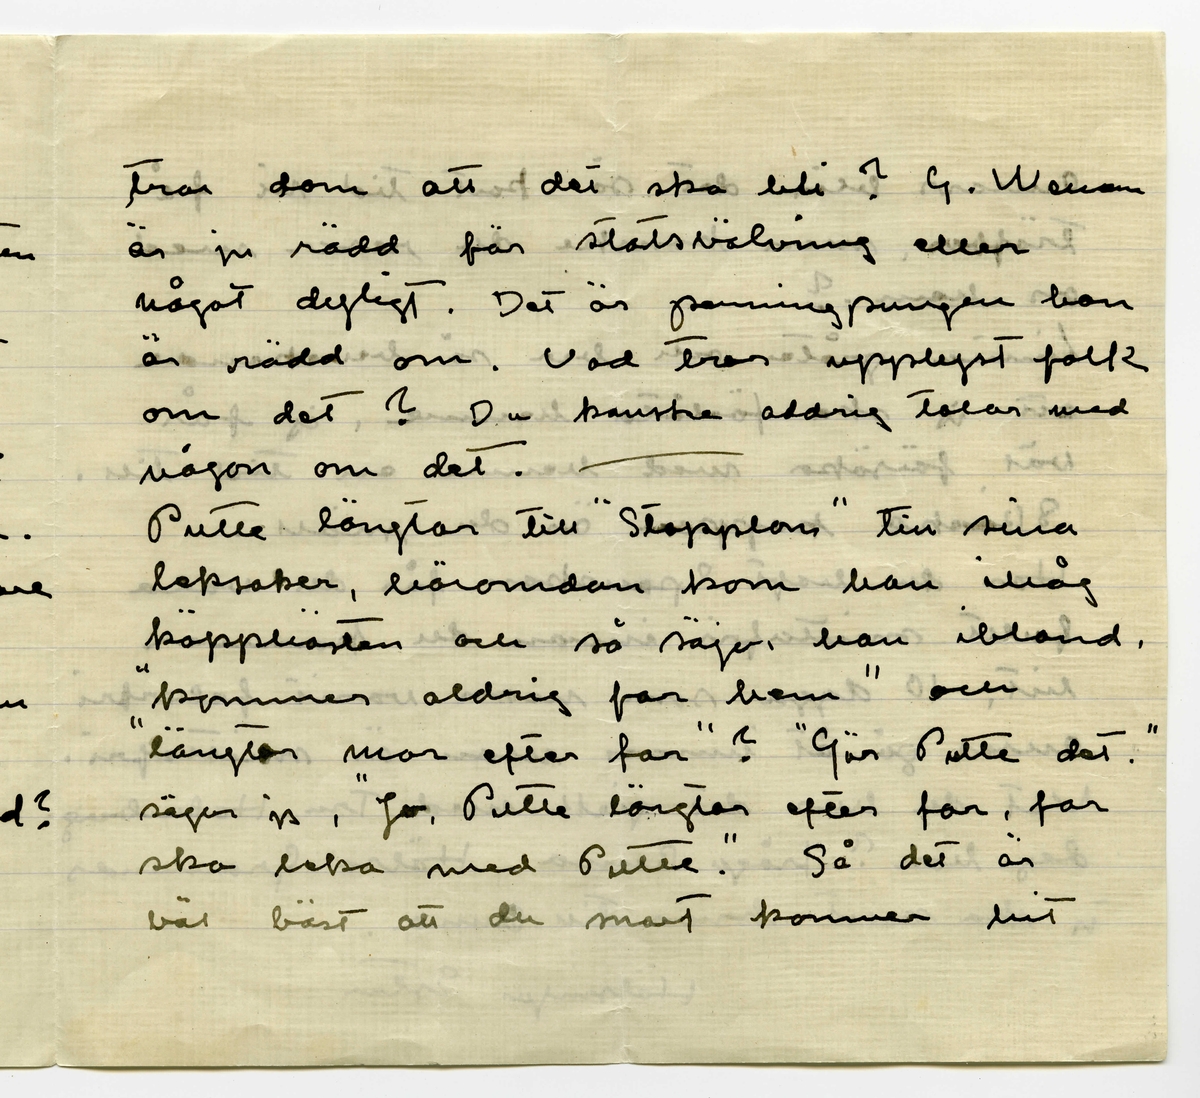 tror dom att det ska bli? G. Wenan
är ju rädd för statsvälvning eller
något dygligt. Det är penningpungen han
är rädd om. Vad tror upplyst folk
om det? Du kanske aldrig talar med
någon om det. —
Putte längtar till "Stopplan" till sina
leksaker, häromdan kom han ihåg
käpphästen och så säjer han ibland,
"kommer aldrig far hem" och
"längtar mor efter far"? "Gör Putte det."
säger ja, "Ja, Putte längtar efter far, far
ska leka med Putte." Så det är
väl bäst att du snart kommer hit